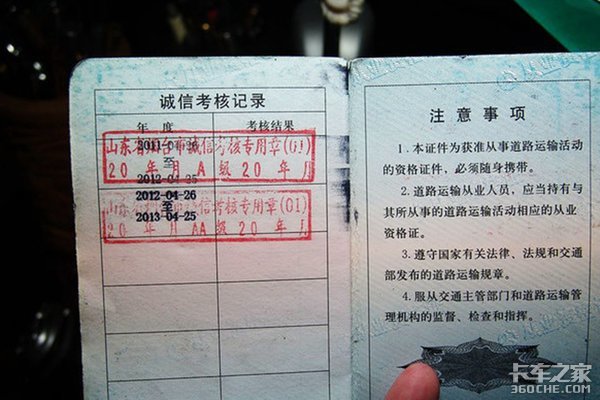 诚信考核记录
年 度 考核结果
山东省 诚信考核专用章(01)
至
20 年 月 A 级 20 年 月
2012-04-25
2012-04-26
至
山东省 诚信考核专用章(01)
2013-04-25
20 年 月 AA 级 20 年 月
注意事项
1.本证件为获准从事道路运输活动
的资格证件，必须随身携带。
2.道路运输从业人员，应当持有与
其所从事的道路运输活动相应的从业
资格证。
3.遵守国家有关法律、法规和交通
部发布的道路运输规章。
4.服从交通主管部门和道路运输管
理机构的监督、检查和指挥。
卡车之家
360che.com